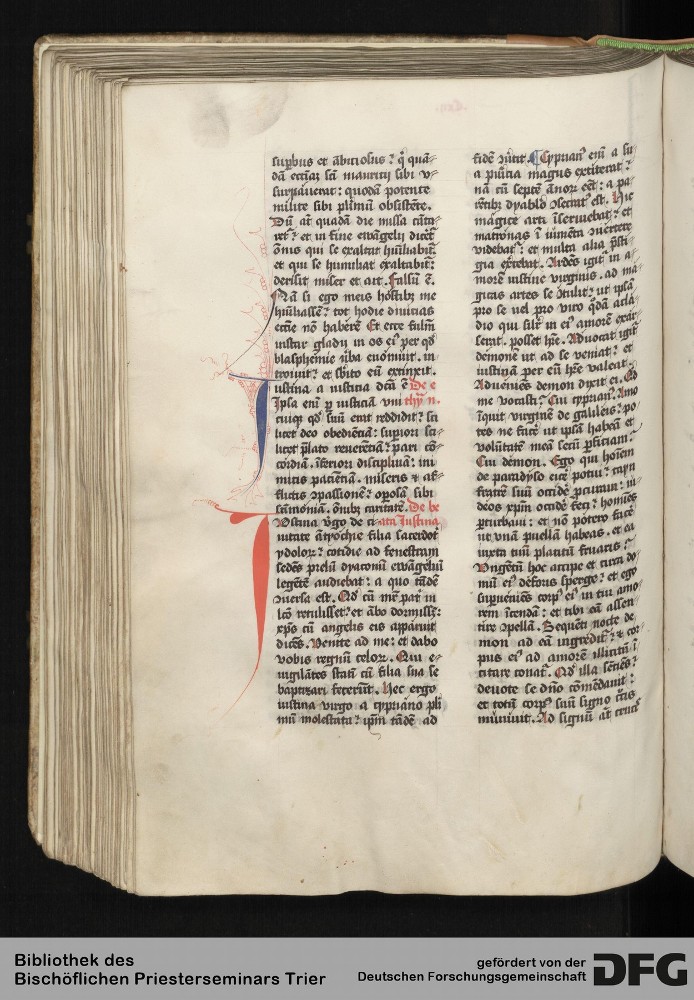 supbus et ābiciosus ⁊ q̇ quā-
dā ecciaʒ sci mauricij sibi v-
surpauerat: quodā potente
milite sibi plimū obsistēte.
Dū at quadā die missa cāta-
ret ⁊ et in fine ewāgelij dicēt
ōnis qui se exaltat hūiliabit
et qui se humiliat exaltabit:
derisit miser et ait. falsū ē.
Nā si ego meis hostibꝫ me
hūiliassē: tot hodie diuicias
eccīe nō haberē Et ecce fulm
instar gladij in os ei per qd
blasphemie ūba euomuit. in
troiuit ⁊ et sbito eū extinxit.
iustina a iusticia dcā ē De e
Ipsa eni p iusticiā vni thȳ n.
cuiqꝫ qd suū erat reddidit ⁊ sci
licet deo obediēciā: supiori sci-
licet plato reuerēciā: pari cō-
cordiā. īferiori disciplinā: ini
micis paciēciā. miseris et af-
flictis ↄpassionē: oposā sibi
scīmoniā. ōnibꝫ caritatē. De be
Iustina v̄go de ci- ata Iustina
uitate āthyochie filia sacerdoť
ydoloꝝ: cotidie ad fenestram
sedēs preliū dyaconū ewāgeliū
legētē audiebat: a quo tādē
ↄuersa est. Qd cū mr̄ pat in
lcō retulisset: et ābo dormissēt:
xp̄s cū angelis eis apparuit
dicēs. Venite ad me: et dabo
vobis regnū celoꝝ. Qui e-
uigilātes statī cū filia sua se
baptizari fecerūt. Hec ergo
iustina virgo a cypriano pli
mū molestata: ipm tādē ad
fidē ↄūtit. ¶ Cyprian enī a su-
a pūicia magus extiterat:
nā cū septē ānoꝝ eēt: a pa-
rētibꝫ dyabolo ↄsecrať est. Hic
magice arti īseruiebat: et
matronas ī iumēta ↄuertere
videbat: et multa alia p̄sti-
gia exercebat. Ardēs igit in a-
morē iustine virginis. ad ma-
gicas artes se ↄtulit: ut ipsā
pro se uel pro viro qdā acla-
dio qui silr in ei amorē exar-
serat. posset hr̄e. Aduocat igit
demonē ut ad se veniat: et
iustinā per eū hr̄e valeat.
Adueniēs demon dixit ei. Qd
me vocasti: Cui cyprian. Amo
īquit virginē de galileis: po-
tes ne facē ut ipsā habeā et
volūtatē meā secū pficiam:
Cui demon. Ego qui hoīem
de paradyso eicē potui: cayn
fratrē suū occidē pcuraui: iu-
deos xpm occidē feci: homines
pturbaui: et nō potero facē
ut vnā puellā habeas. et ea
iuxta tuū placitū fruaris:
Vngētū hoc accipe et circa do-
mū ei deforis sperge: et ego
supueniēs corp ei in tuū amo-
rem īcendā: et tibi eā assen-
tire ↄpellā. Sequēti nocte de-
mon ad eā ingredit: et cor-
pus ei ad amorē illicitū ī-
citare conat. Qd illa sēciēs
deuote se dn̄o cōmēdauit:
et totū corp suū signo crūs
muniuit. Ad signū at crucis
Bibliothek des
Bischöflichen Priesterseminars Trier
gefördert von der
Deutschen Forschungsgemeinschaft
DFG